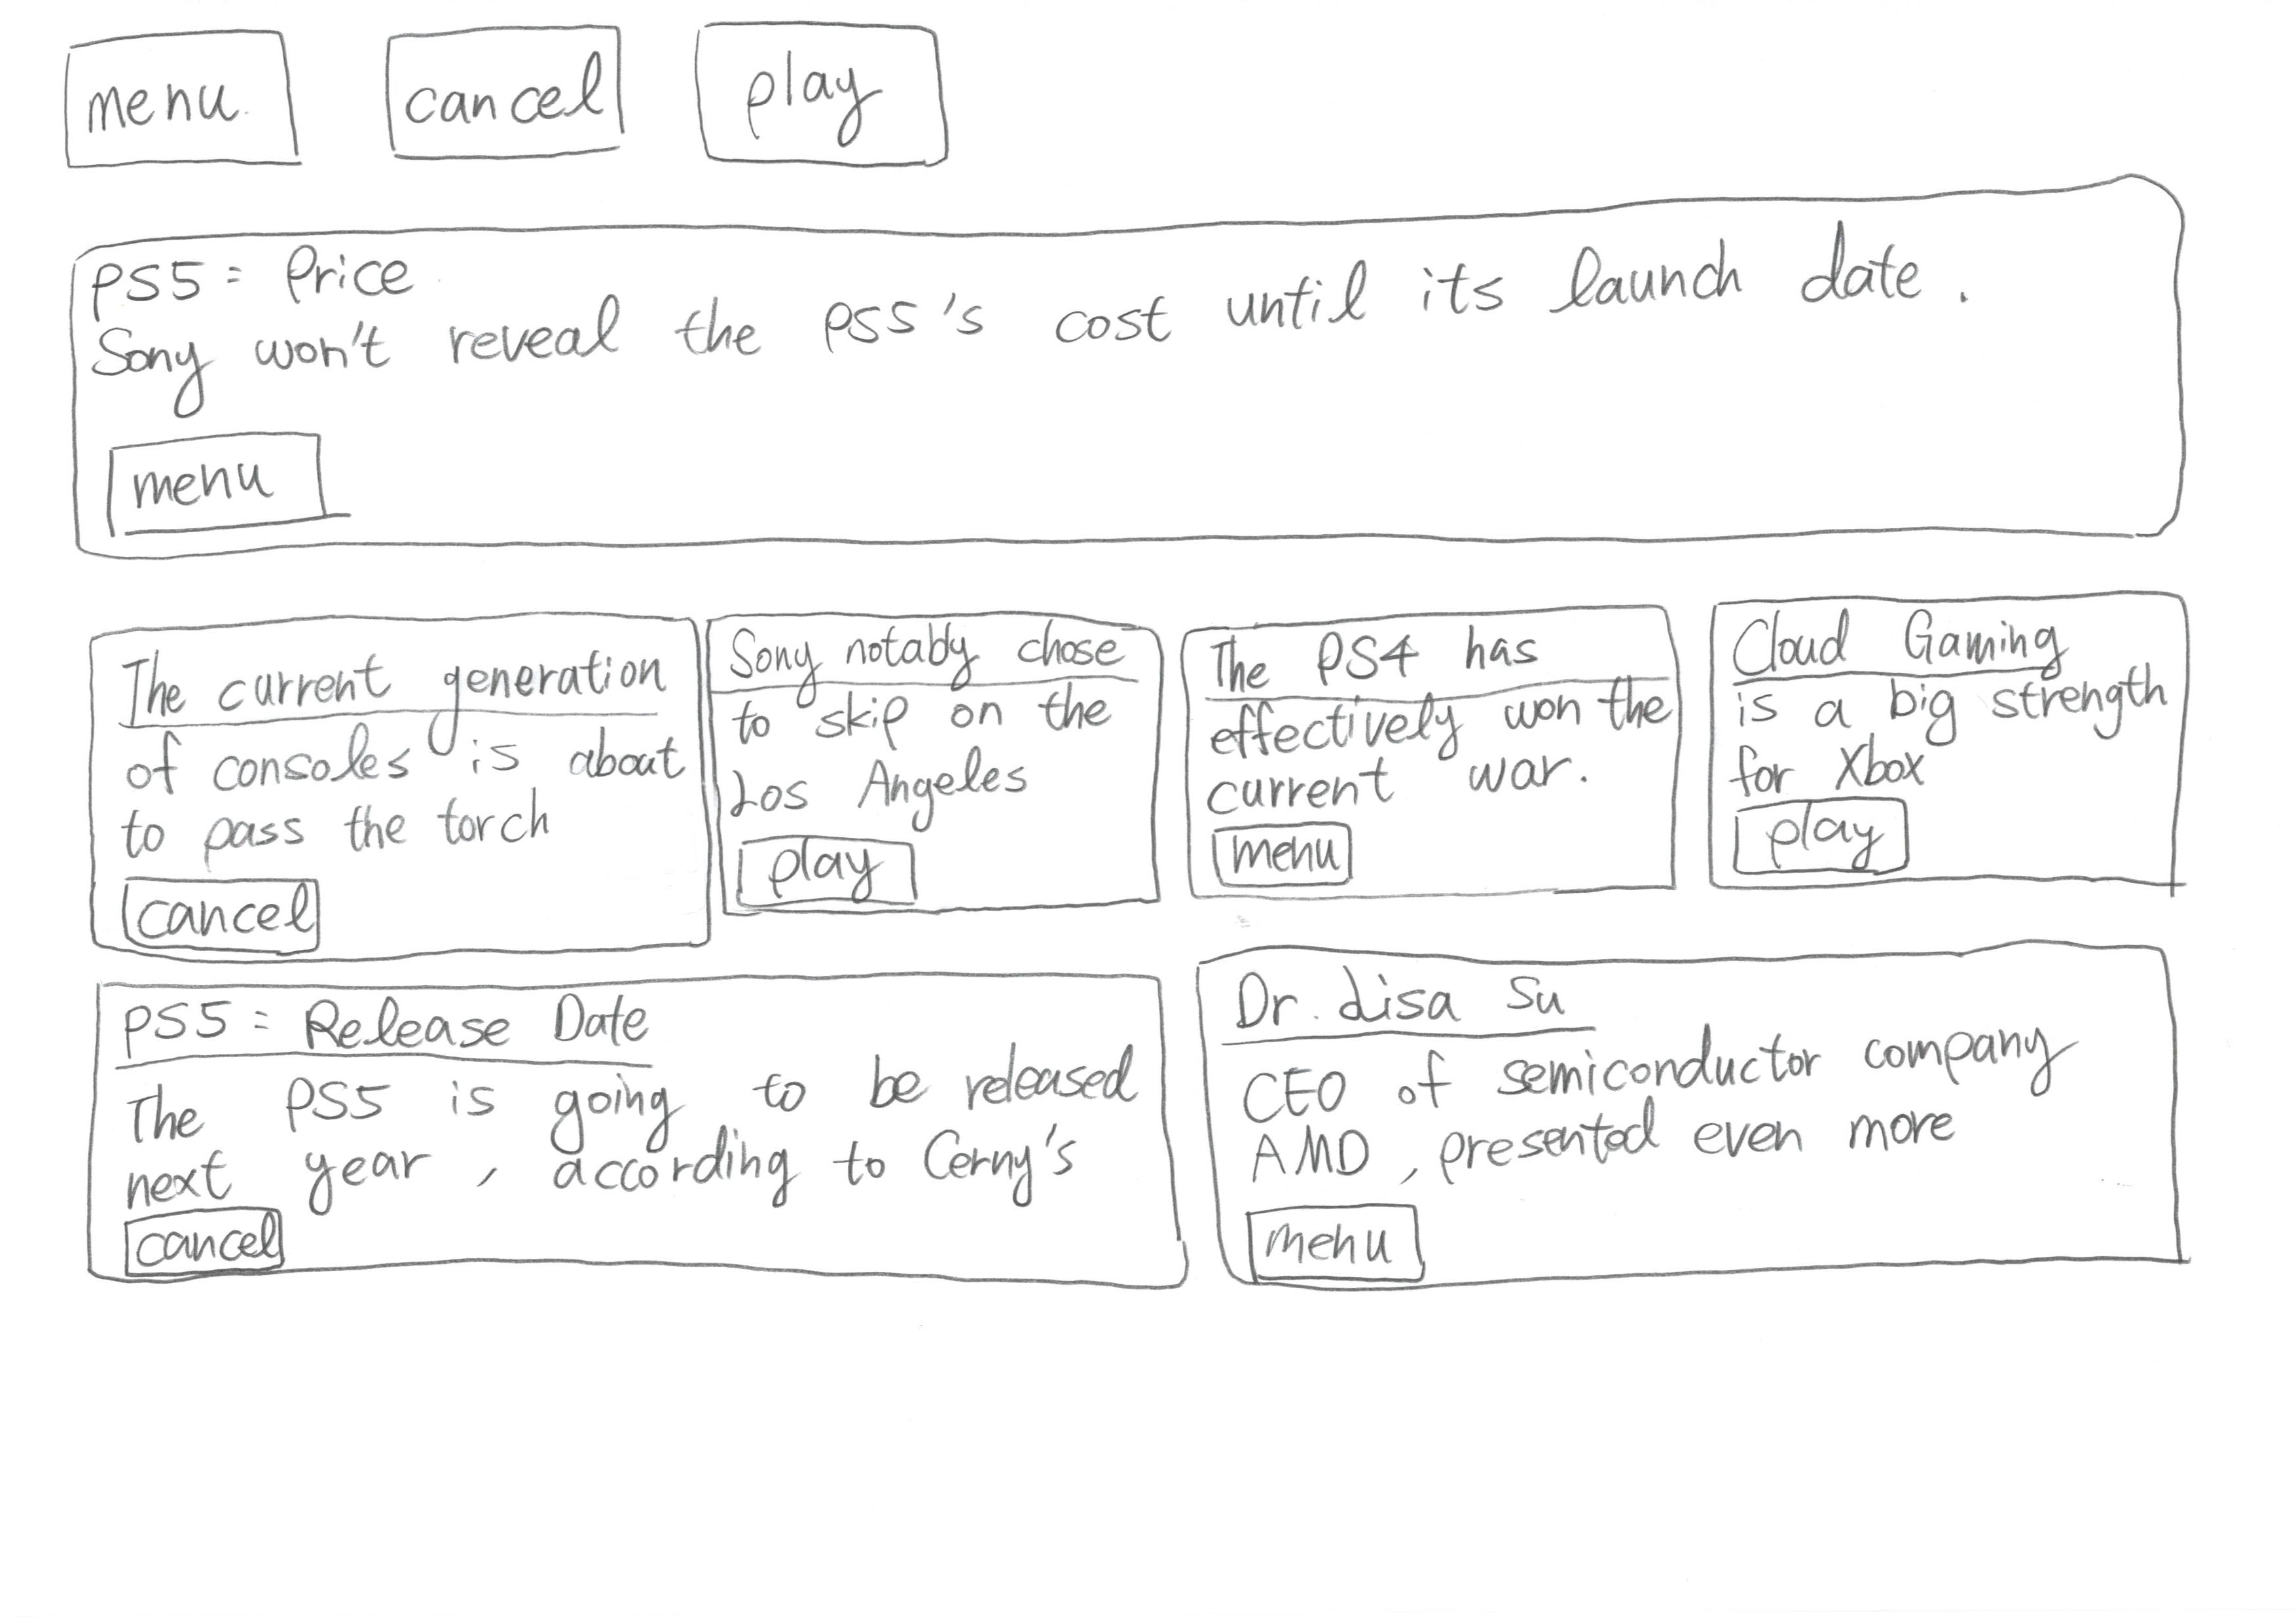 menu
cancel
play
PS5 = Price
Sony won't reveal the PS5's cost until its launch date.
menu
The current generation
of consoles is about
to pass the torch
cancel
Sony notably chose
to skip on the
Los Angeles
play
The PS4 has
effectively won the
current war.
menu
Cloud Gaming
is a big strength
for Xbox
play
PS5 = Release Date
The PS5 is going to be released
next year, according to Cerny's
cancel
Dr. Lisa Su
CEO of semiconductor company
AMD, presented even more
menu